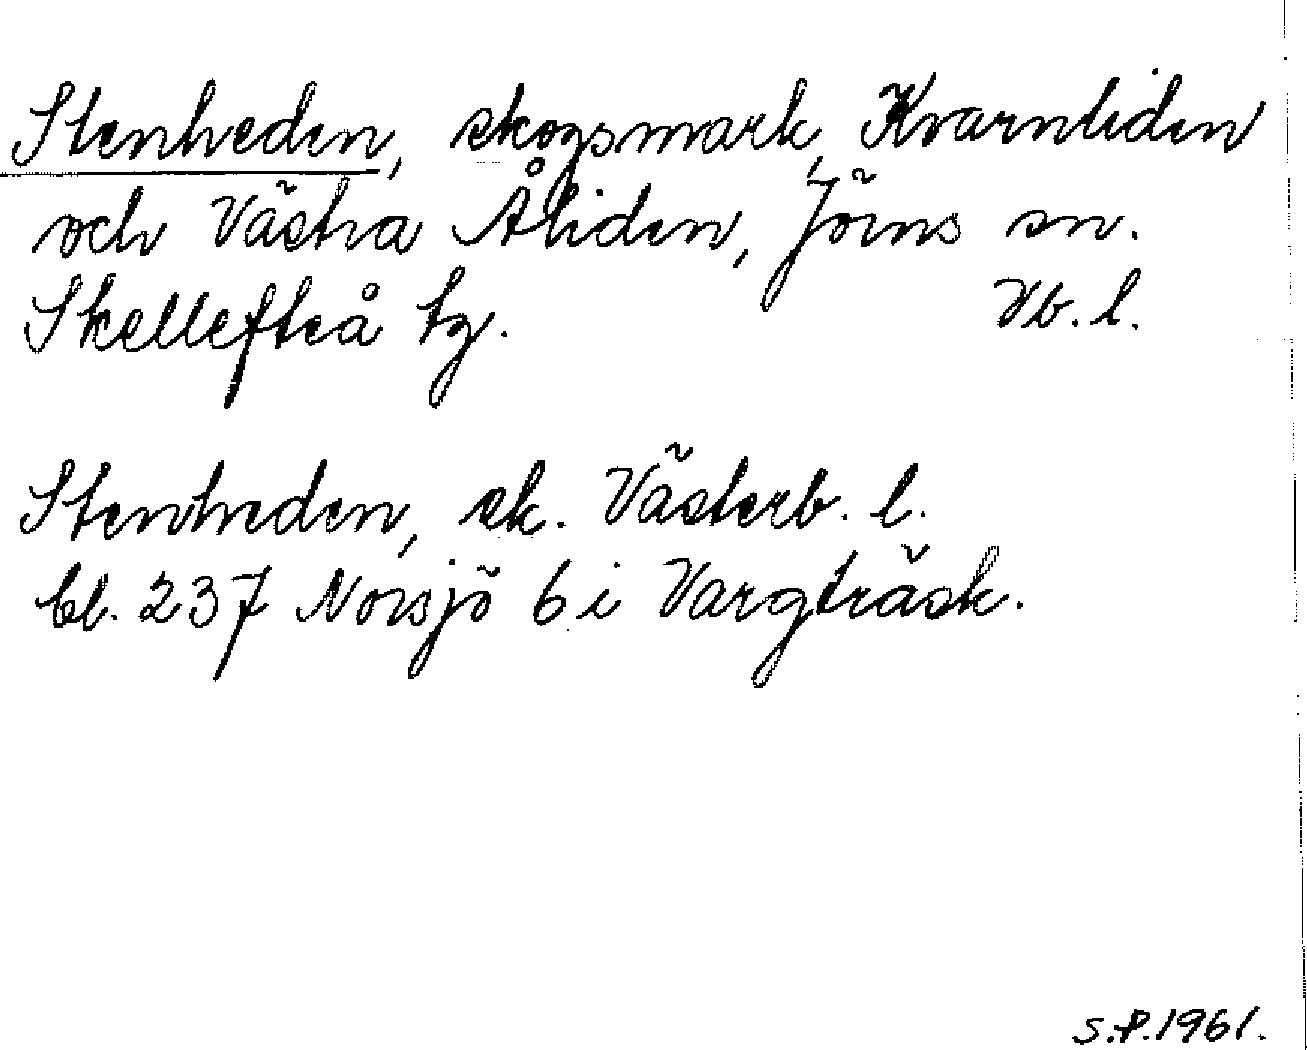 Stenheden, skogsmark, Kvarnliden
och Västra Åliden, Jörns sn.
Skellefteå tg. Vb. l.
Stenheden, sk. Västerb. l.
bl. 237 Norsjö 6 i Vargträsk.
S.P. 1961.